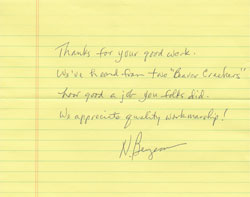 Thanks for your good work.
We've heard from two "Beaver Creekers"
how good a job you folks did.
We appreciate quality workmanship!
N.